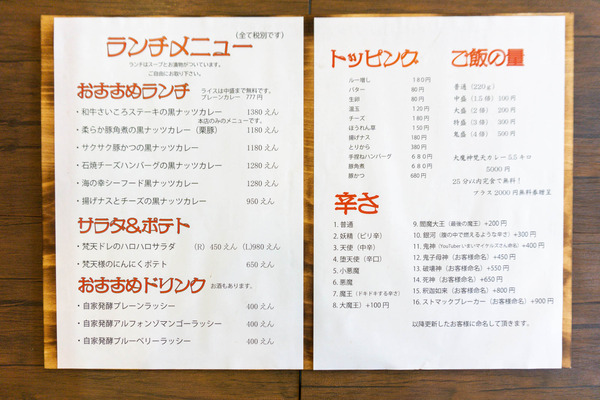 ランチメニュー (全て税別です)
ランチはスープとお漬物がついています。
ご自由にお取り下さい。
おすすめランチ
ライスは中盛まで無料です。
プレーンカレー 777円
・和牛さいころステーキの黒ナッツカレー 1380えん
本店のみのメニューです。
・柔らか豚角煮の黒ナッツカレー(栗豚) 1180えん
・サクサク豚かつの黒ナッツカレー 1180えん
・石焼チーズハンバーグの黒ナッツカレー 1280えん
・海の幸シーフード黒ナッツカレー 1280えん
・揚げナスとチーズの黒ナッツカレー 950えん
サラダ&ポテト
・梵天ドレのハロハロサラダ (R) 450えん (L)980えん
・梵天様のにんにくポテト 650えん
おすすめドリンク お酒もあります。
・自家発酵プレーンラッシー 400えん
・自家発酵アルフォンゾマンゴーラッシー 400えん
・自家発酵ブルーベリーラッシー 400えん
トッピング
ルー増し 180円
バター 80円
生卵 80円
温玉 120円
チーズ 180円
ほうれん草 150円
揚げなす 180円
とりから 380円
手捏ねハンバーグ 680円
豚角煮 680円
豚かつ 680円
ご飯の量
普通(220g)
中盛(1.5倍) 100円
大盛(2倍) 200円
特盛(3倍) 300円
鬼盛(4倍) 500円
大魔神梵天カレー5.5キロ
5000円
25分以内完食で無料!
プラス2000円無料券贈呈
辛さ
1. 普通
2. 妖精(ピリ辛)
3. 天使(中辛)
4. 堕天使(辛口)
5. 小悪魔
6. 悪魔
7. 魔王(ドキドキする辛さ)
8. 大魔王)+100円
9. 閻魔大王(最後の魔王)+200円
10. 銀河(腹の中で燃えるような辛さ)+300円
11. 鬼神(YouTubeいまいマイケルズさん命名)+400円
12. 鬼子母神(お客様命名)+450円
13. 破壊神(お客様命名)+550円
14. 死神(お客様命名)+650円
15. 釈迦如来(お客様命名)+800円
16. ストマックブレーカー(お客様命名)+900円
以降更新したお客様に命名して頂きます。